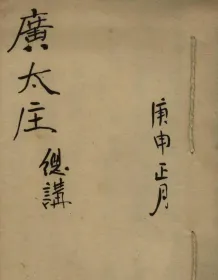 庚申正月
廣太庄
總講